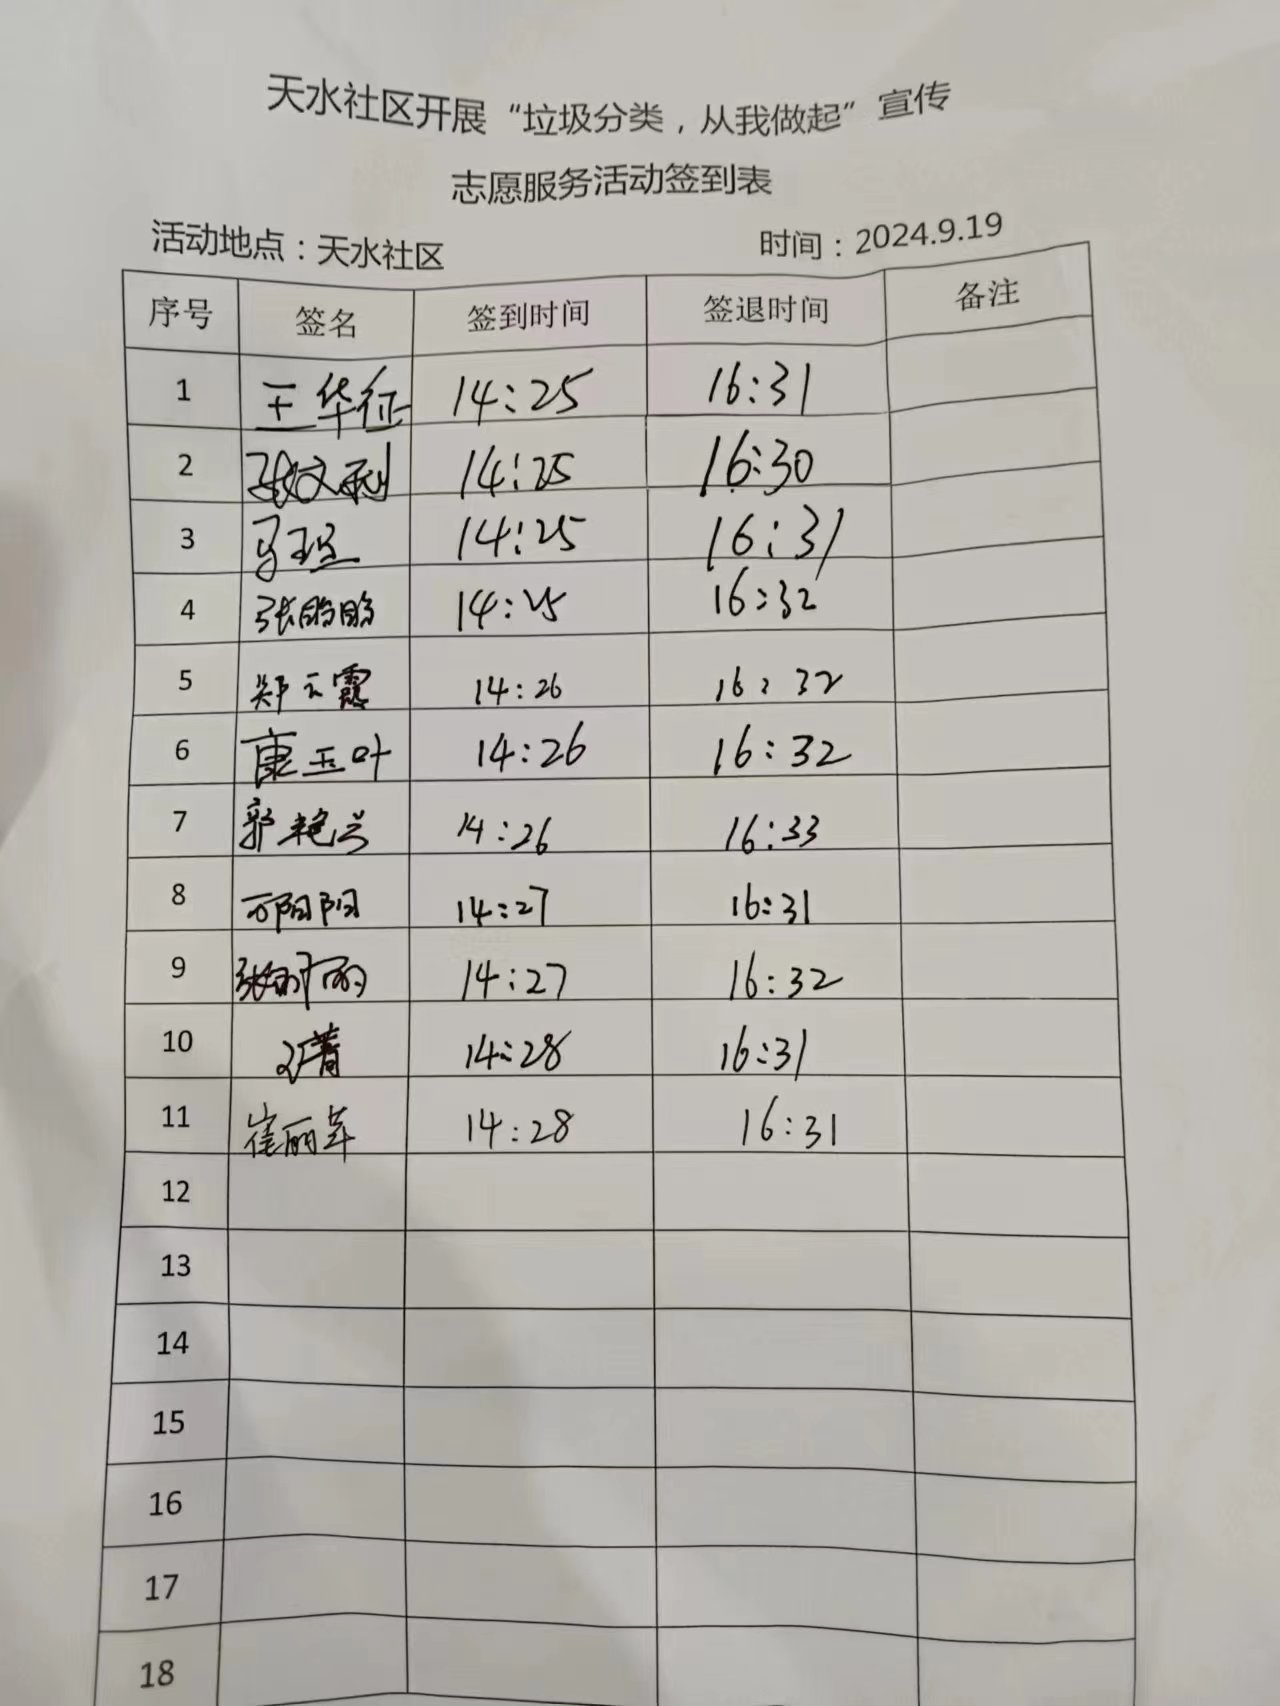 天水社区开展“垃圾分类，从我做起”宣传
志愿服务活动签到表
活动地点：天水社区 时间：2024.9.19
序号 签名 签到时间 签退时间 备注
1 王华征 14:25 16:31
2 张文利 14:25 16:30
3 14:25 16:31
4 张鸽鸽 14:25 16:32
5 郑云霞 14:26 16:32
6 康玉叶 14:26 16:32
7 郭艳兰 14:26 16:33
8 万阳阳 14:27 16:31
9 14:27 16:32
10 14:28 16:31
11 崔丽苹 14:28 16:31
12
13
14
15
16
17
18